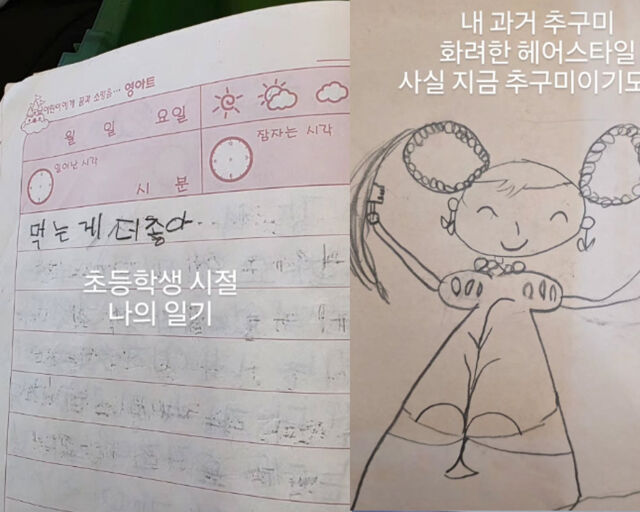 어린이에게 꿈과 소망을··· 영아트
월 일 요일
일어난 시각
시 분
잠자는 시각
먹는 게 더 좋아.
초등학생 시절
나의 일기
내 과거 추구미
화려한 헤어스타일
사실 지금 추구미이기도